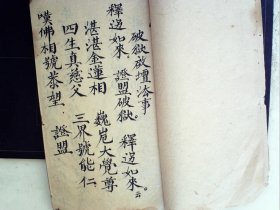 破獄啟壇法事
釋迦如來 證盟破獄。 釋迦如來。云
湛湛金蓮相 巍巍大覺尊
四生真慈父 三界號能仁
嘆佛相號恭望 證盟